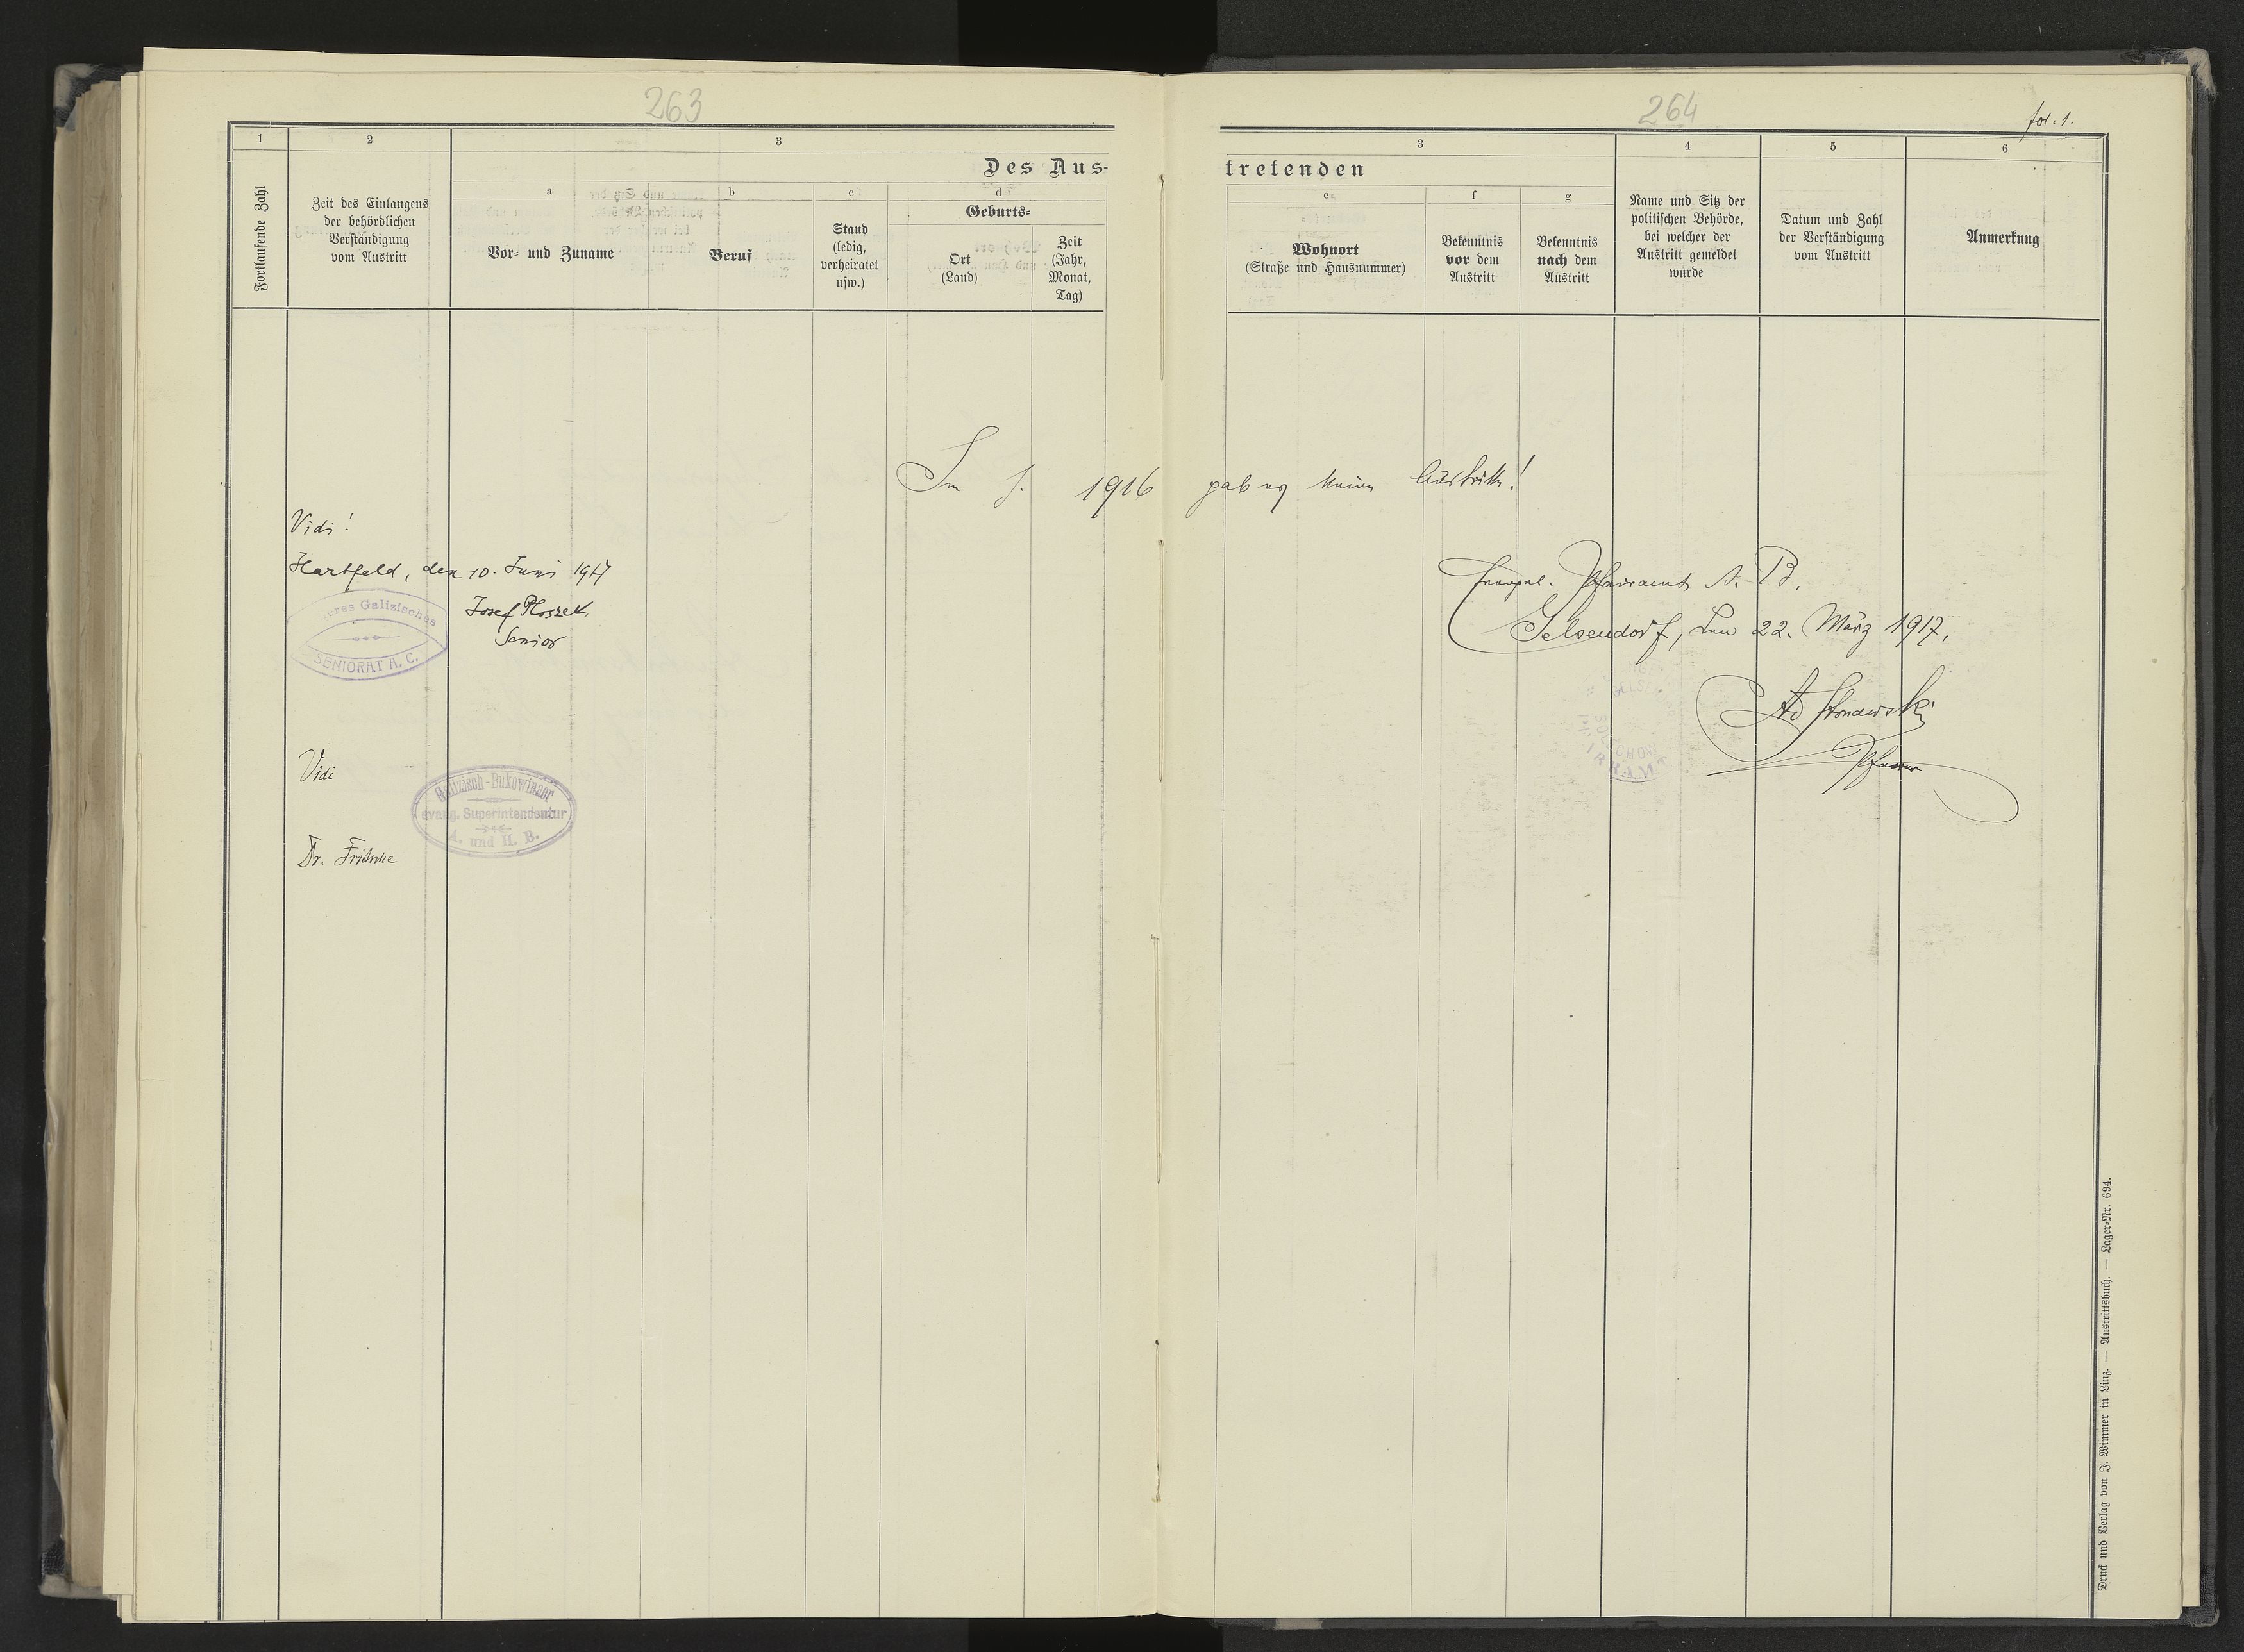 263
1
2
3
Des Aus-
Fortlaufende Zahl
Zeit des Einlangens
der behördlichen
Verständigung
vom Austritt
a
Vor- und Zuname
b
Beruf
c
Stand
(ledig,
verheiratet
usw.)
d
Geburts-
Ort
(Land)
Zeit
(Jahr,
Monat,
Tag)
264
fol. 1.
3
4
5
6
tretenden
e
Wohnort
(Straße und Hausnummer)
f
Bekenntnis
vor dem
Austritt
g
Bekenntnis
nach dem
Austritt
Name und Sitz der
politischen Behörde,
bei welcher der
Austritt gemeldet
wurde
Datum und Zahl
der Verständigung
vom Austritt
Anmerkung
Im J. 1916 gab es keine Austritte!
Vidi!
Hartfeld, den 10. Juni 1917
Josef Ploszek,
Senior
eres Galizisches
SENIORAT A. C.
Vidi
Galizisch-Bukowinaer
evang. Superintendentur
A. und H. B.
Dr. Fritsche
Evangel. Pfarramt A. B.
Gelsendorf, den 22. März 1917.
Pfarrer
Druck und Verlag von J. Wimmer in Linz. — Austrittsbuch. — Lager-Nr. 694.